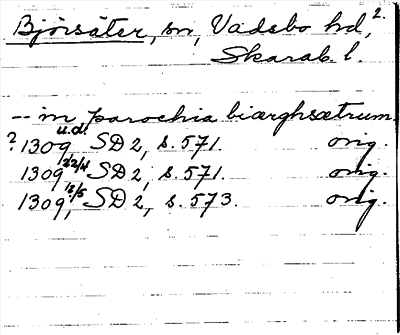 Björsäter, sn, Vadsbo hd, 2.
Skarab. l.
-- in parochia biærghsætrum.
? 1309 u.d. SD 2, s. 571. orig.
1309 22/4 SD 2, s. 571. orig.
1309, 12/5 SD 2, s. 573. orig.